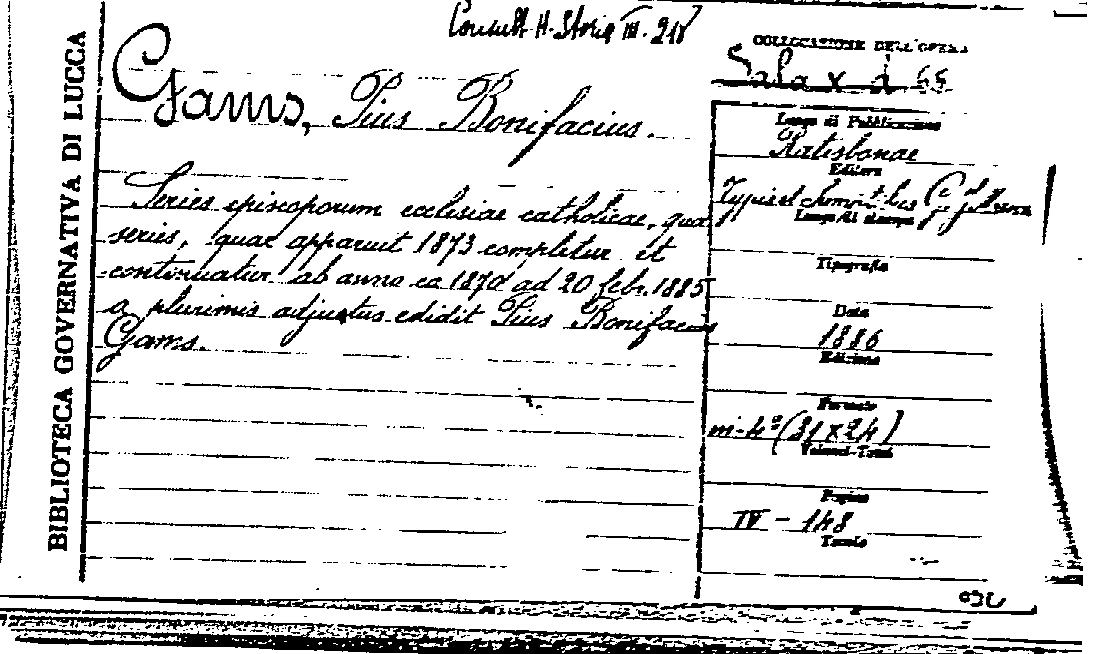 Consult. H. Storia III. 218
BIBLIOTECA GOVERNATIVA DI LUCCA
Gams, Pius Bonifacius.
Series episcoporum ecclesiae catholicae, qua
series, quae apparuit 1873 completur et
continuatur ab anno ca 1870 ad 20 febr. 1885
a plurimis adjustus edidit Pius Bonifacius
Gams.
COLLOCAZIONE DELL'OPERA
Sala X d 65
Luogo di Pubblicazione
Ratisbonae
Editore
Typis et
Luogo di stampa
Tipografia
Data
1886
Edizione
Formato
in-4° (31x24)
Volumi-Tomi
Pagine
IV - 148
Tavole